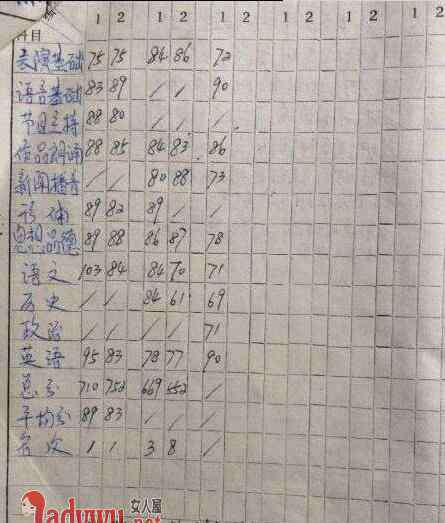 科目 1 2 1 2 1 2 1 2 1 2 1 2
表演基础 75 75 84 86 72
语音基础 83 89 / / 90
节目主持 88 80 / / /
作品朗诵 88 85 84 83 86
新闻播音 / / 80 88 73
形体 89 82 89 / /
思想品德 89 88 86 87 78
语文 103 84 84 70 71
历史 / / 84 61 69
政治 / / / / 71
英语 95 83 78 77 90
总分 710 752 669 552 /
平均分 89 83 / / /
名次 1 1 3 8 /
女人屋
Ladywu.net